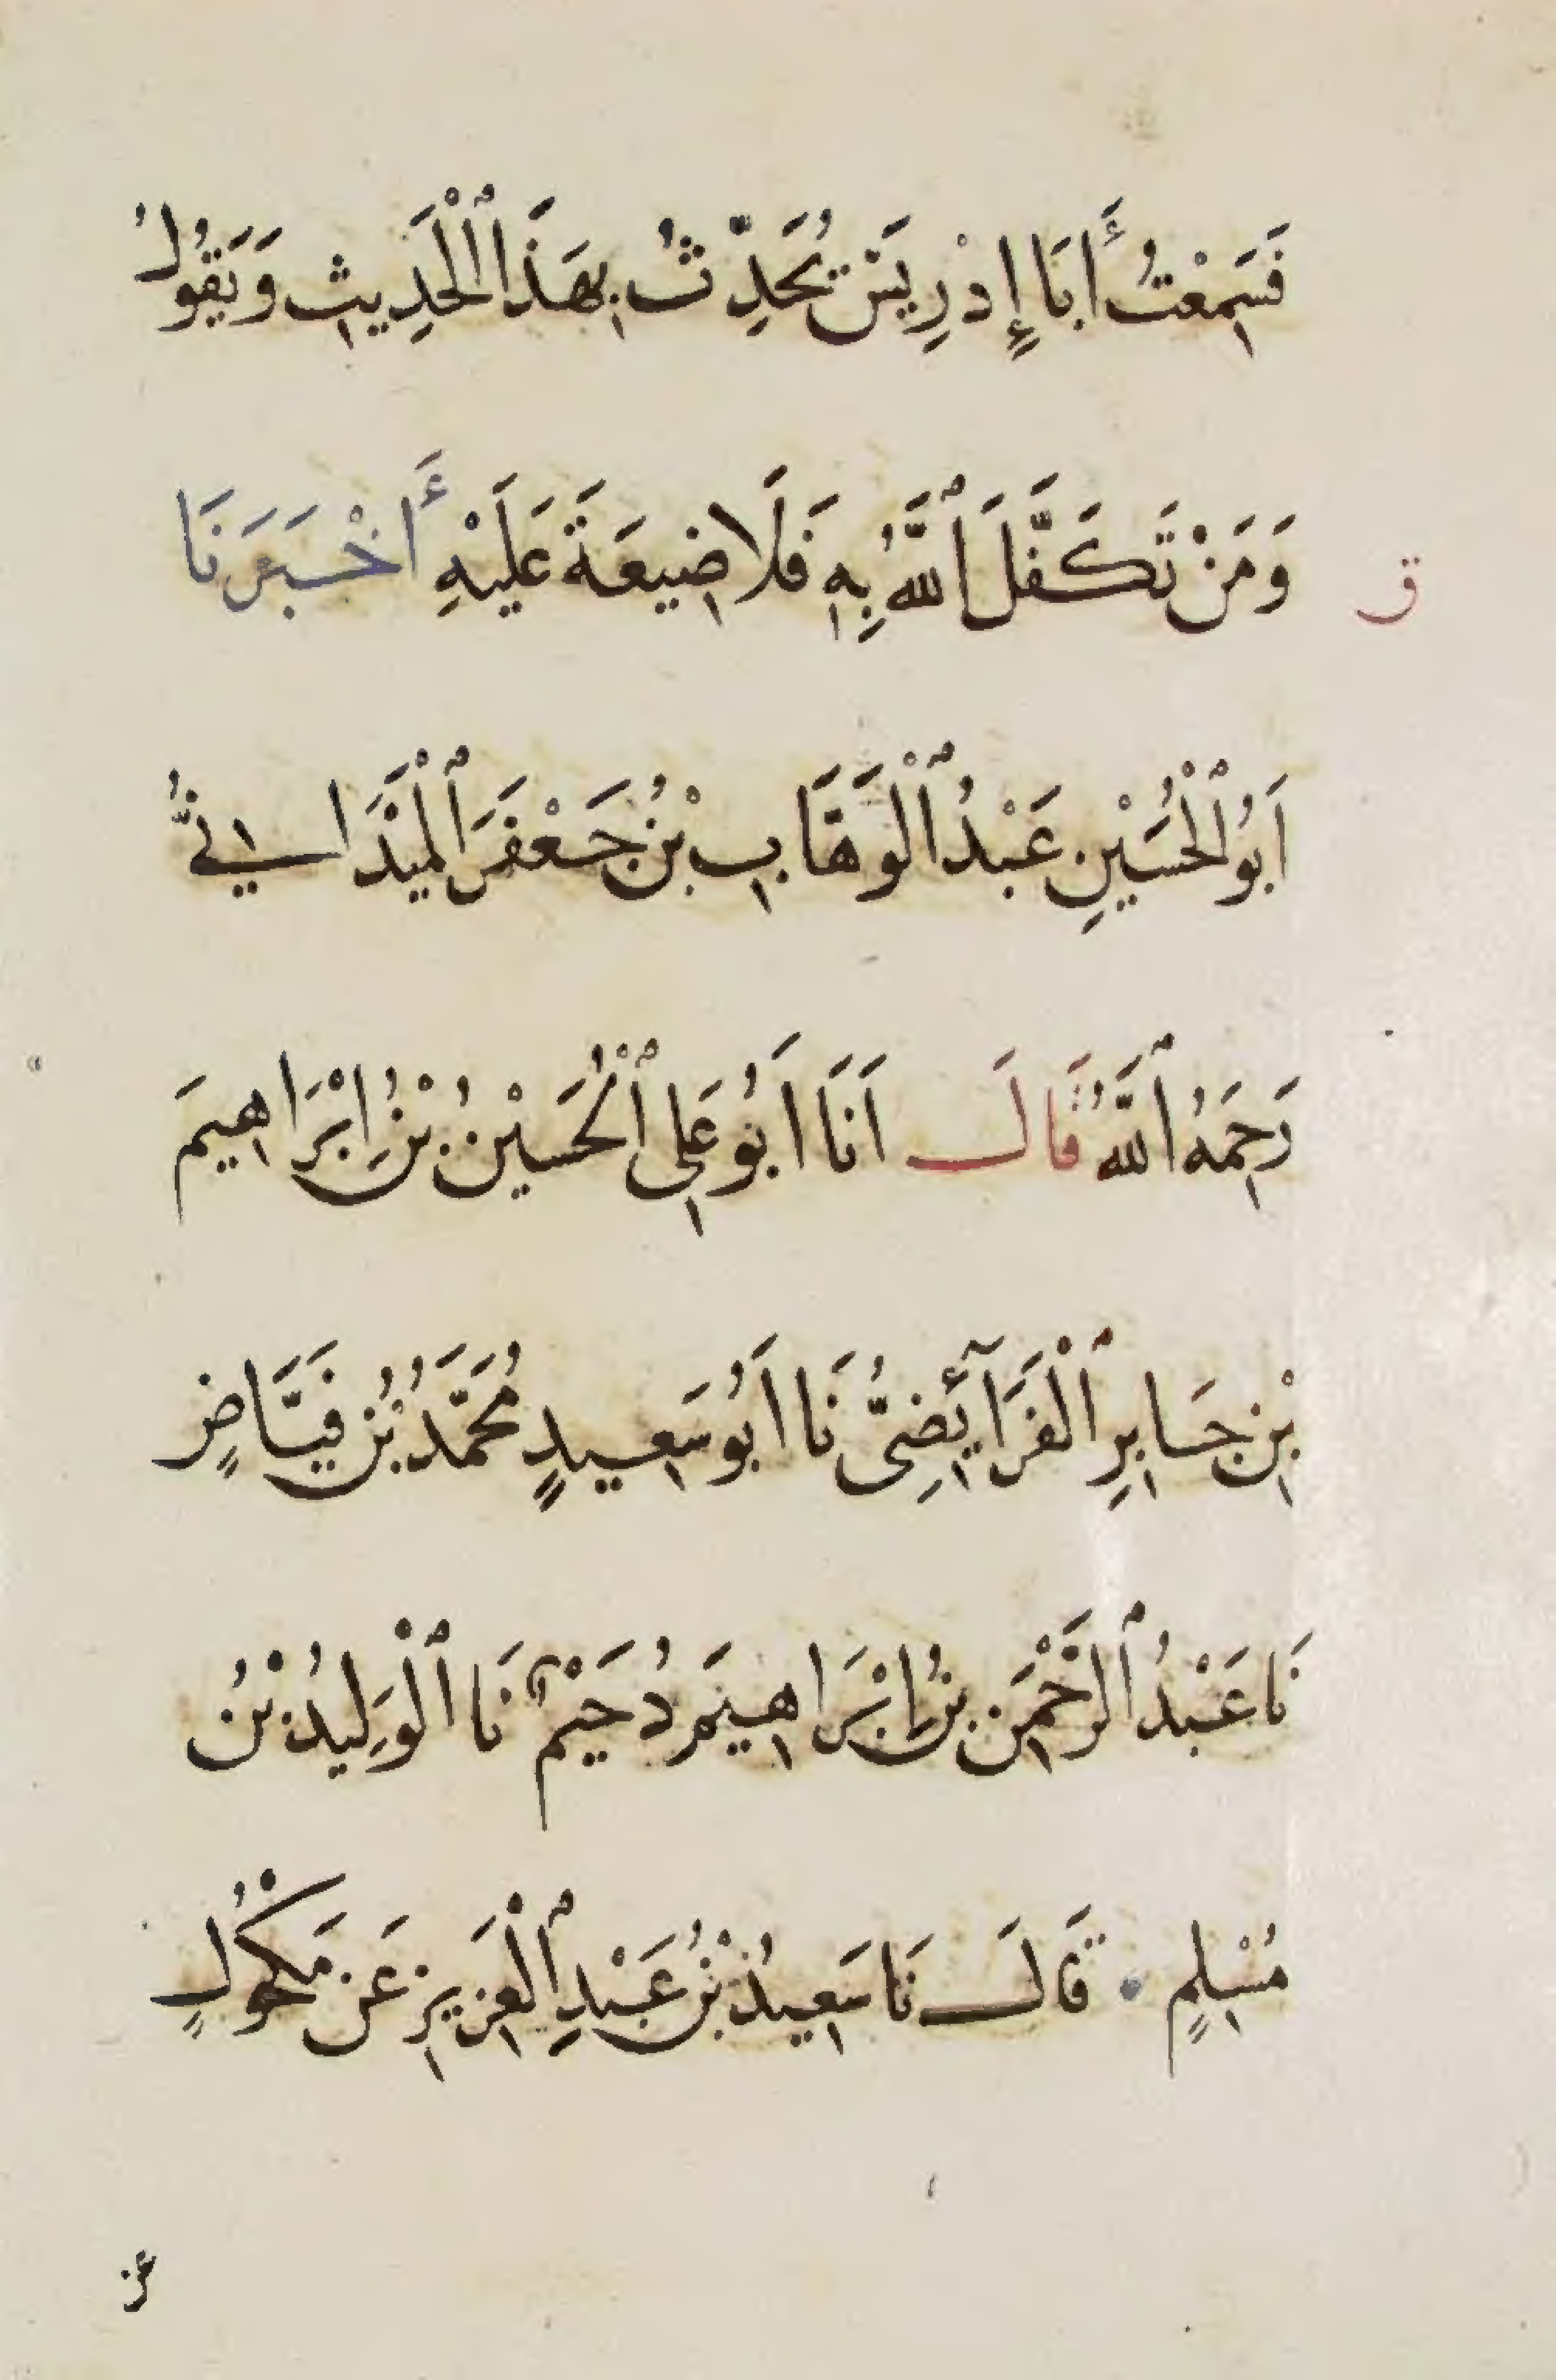 فَسَمِعْتُ أَبَا إِدْرِيسَ يُحَدِّثُ بِهَذَا ٱلْحَدِيثِ وَيَقُولُ
ق
وَمَنْ تَكَفَّلَ ٱللَّهُ بِهِ فَلَا ضِيعَةَ عَلَيْهِ أَخْبَرَنَا
اَبُو ٱلْحُسَيْنِ عَبْدُ ٱلْوَهَّابِ بْنُ جَعْفَرَ ٱلْمَيْدَانِيُّ
رَحِمَهُ ٱللَّهُ قَالَ اَنَا اَبُو عَلِي ٱلْحُسَيْنُ بْنُ اِبْرَاهِيمَ
بْنِ جَابِرِ ٱلْفَرَآئِضِىُّ نَا اَبُو سَعِيدٍ مُحَمَّدُ بْنُ فَيَّاضٍ
نَا عَبْدُ ٱلرَّحْمَنِ بْنُ إِبْرَاهِيمَ دُحَيْمٌ نَا ٱلْوَلِيدُ بْنُ
مُسْلِمٍ قَالَ نَا سَعِيدُ بْنُ عَبْدِ ٱلْعَزِيزِ عَنْ مَكْحُولٍ
عن